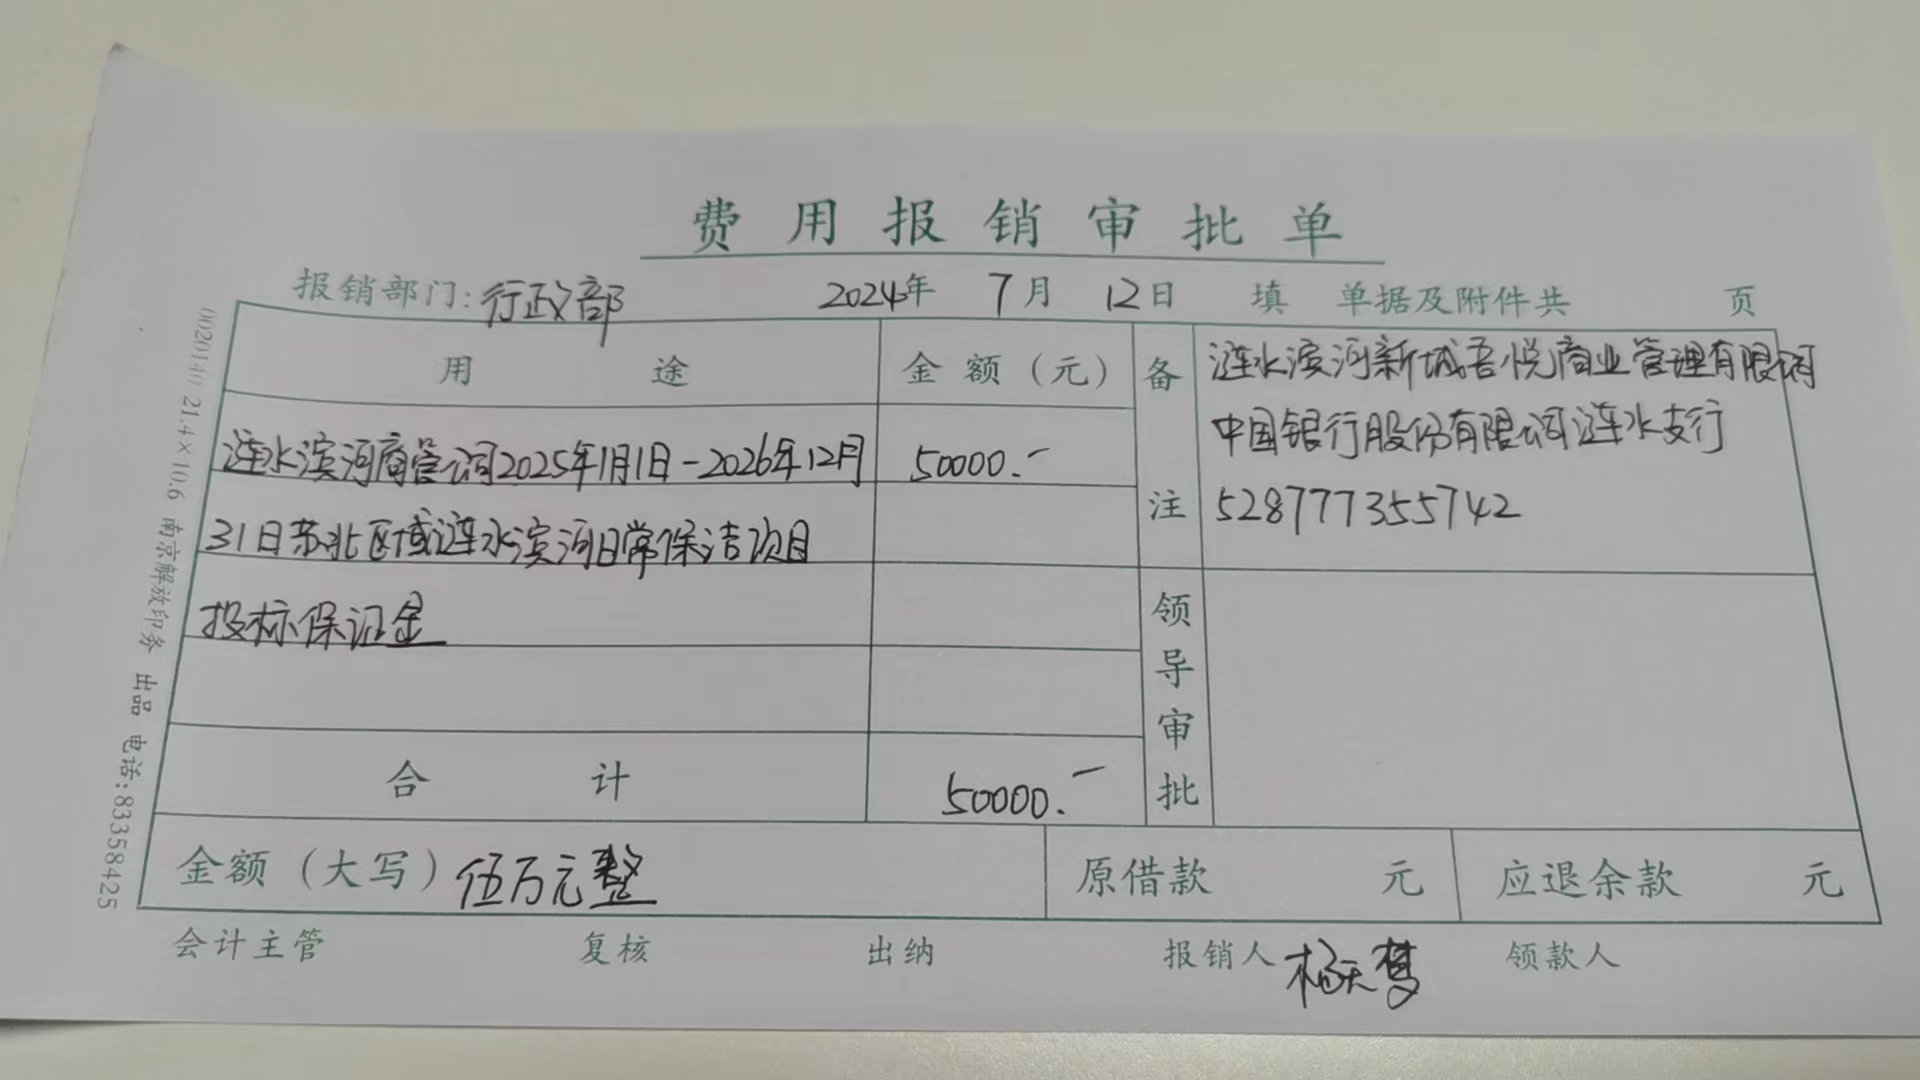 费用报销审批单
报销部门:行政部 2024年 7月 12日 填 单据及附件共 页
用途 金额(元) 备注 涟水滨河新城吾悦商业管理有限公司
中国银行股份有限公司涟水支行
528777355742
涟水滨河商管公司2025年1月1日-2026年12月 50000.-
31日苏北区域涟水滨河日常保洁项目
投标保证金
领导审批
合计 50000.-
金额(大写)伍万元整 原借款 元 应退余款 元
会计主管 复核 出纳 报销人 杨天梦 领款人
0020140 21.4×10.6 南京解放印务 出品 电话:83358425